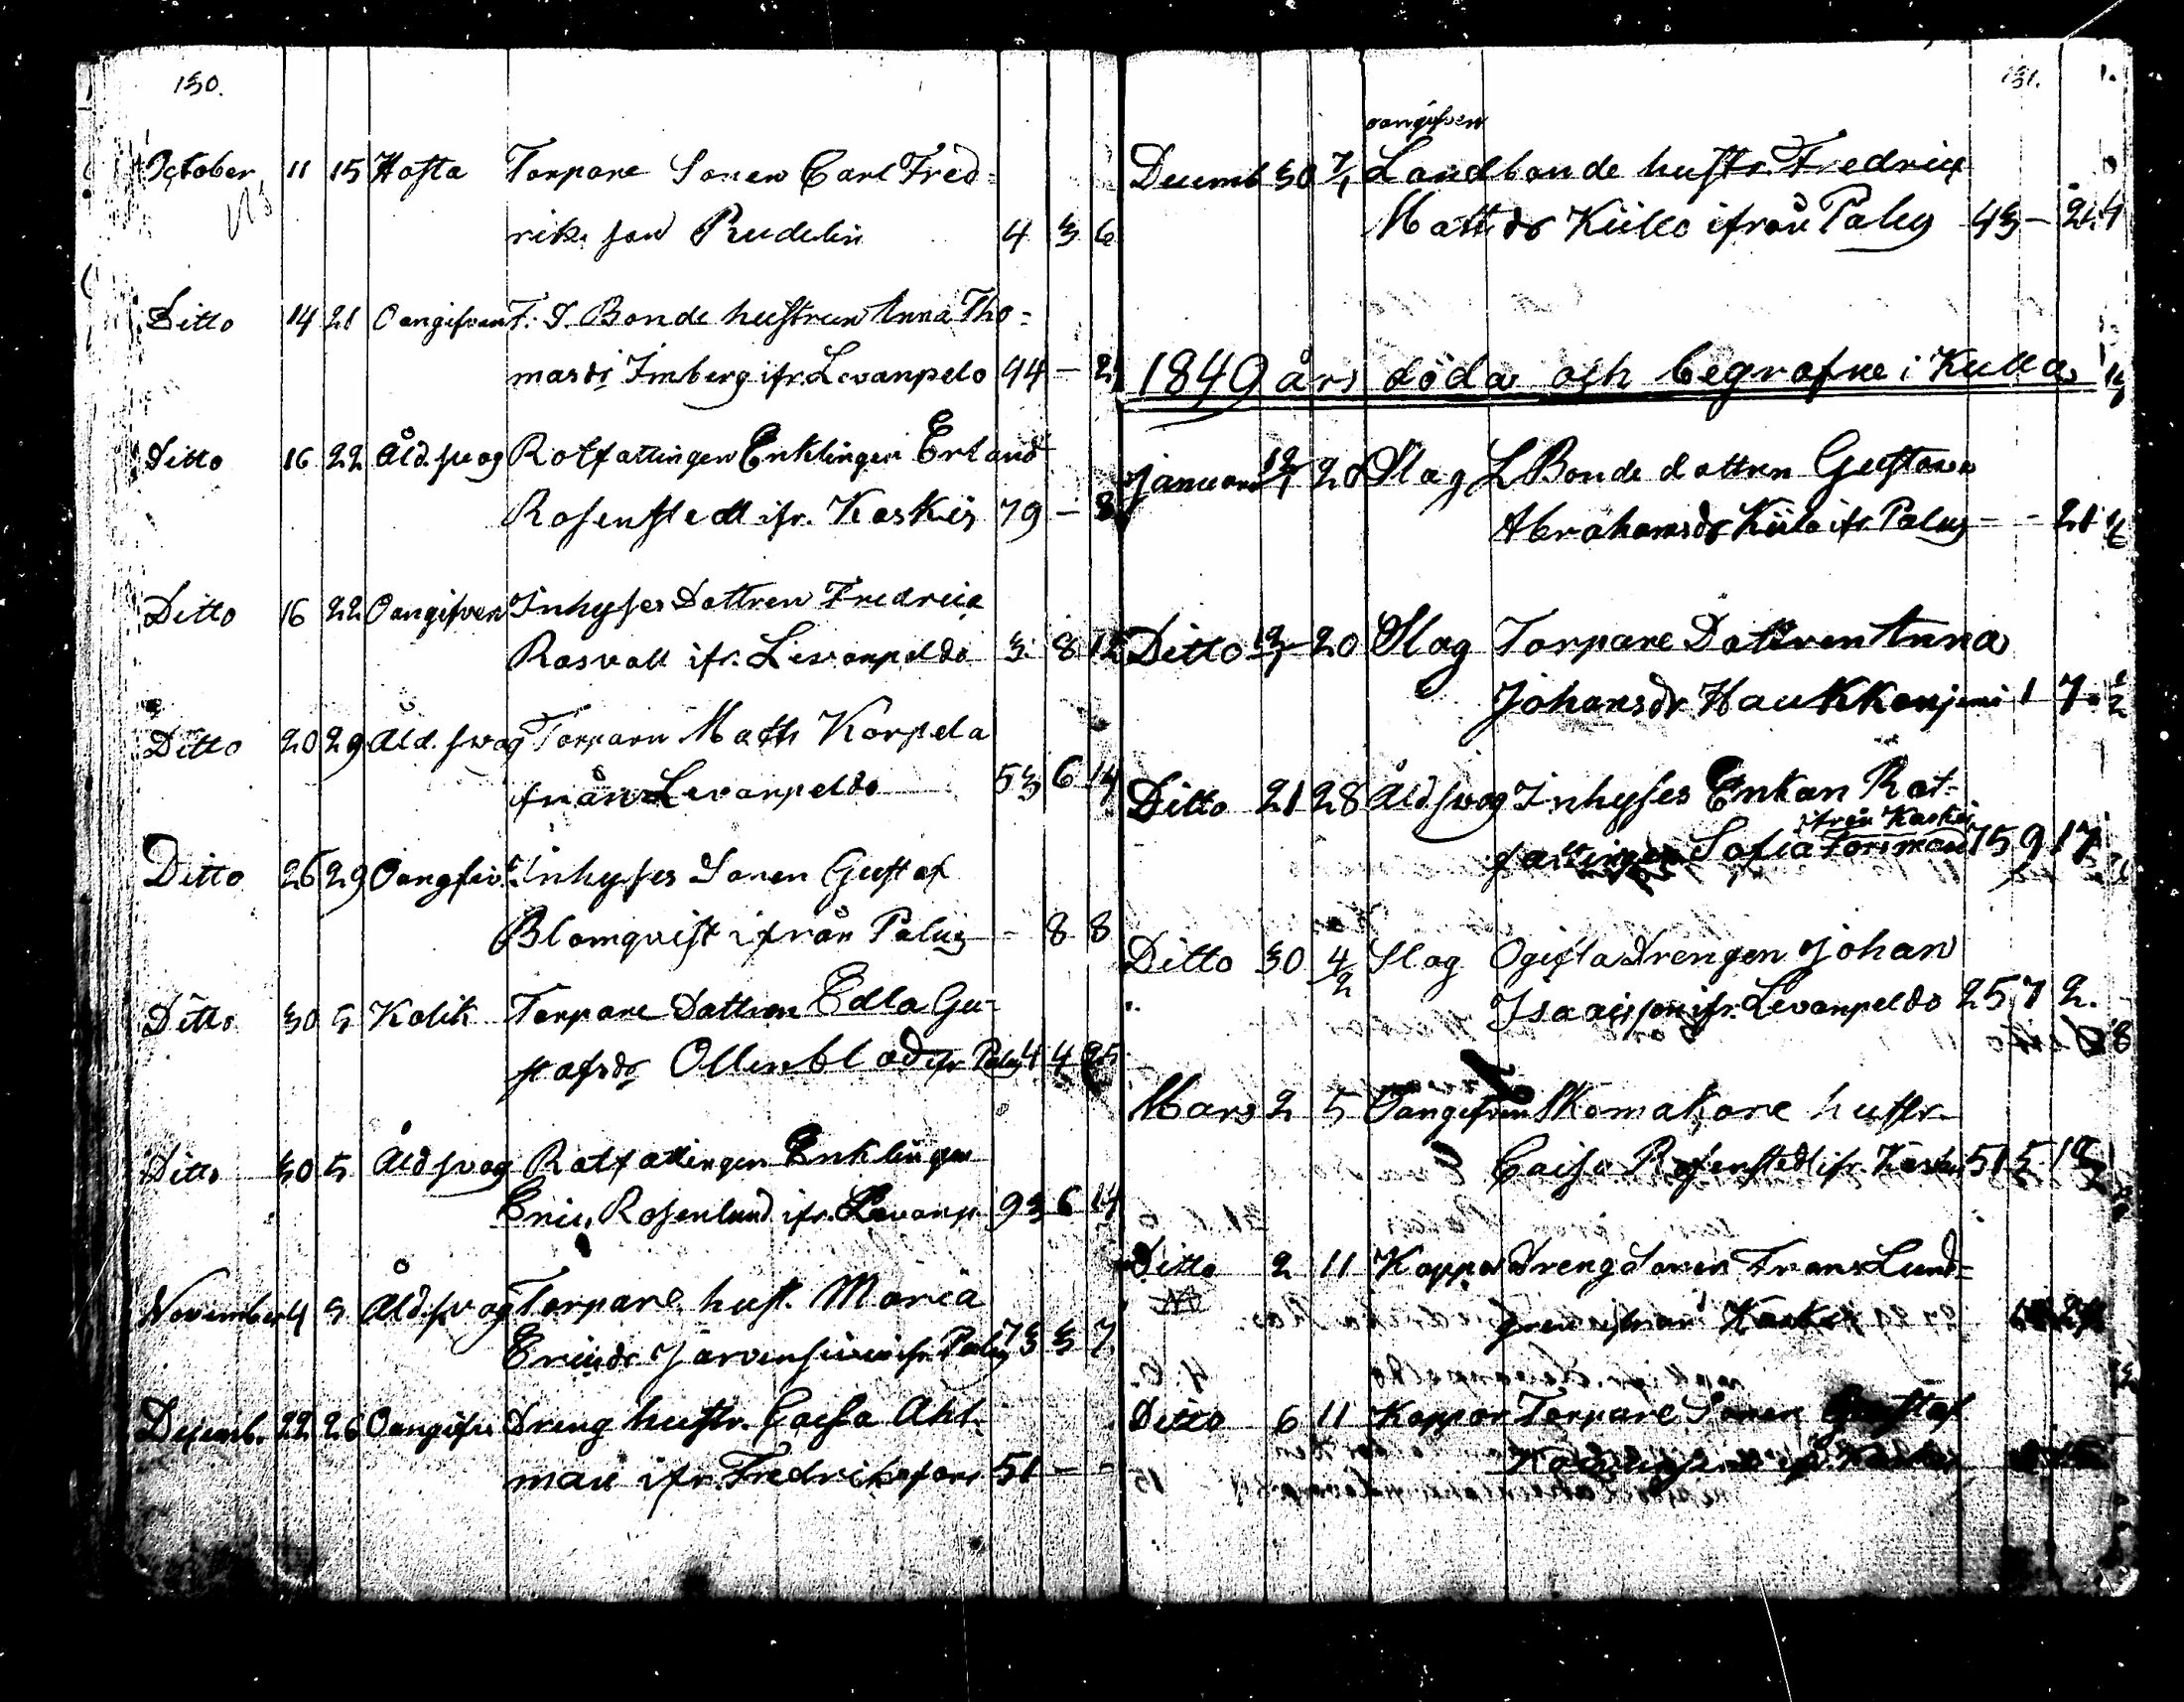 130.
October 11 15 Hosta Torpare Sonen Carl Fred=
rik son Rudelin 4 3 6
Ditto 14 21 Oangifven F. D. Bonde hustrun Anna Tho=
masdr Imberg ifr. Levanpelo 44 - 2
Ditto 16 22 Åld. svag Rotfattingen Enklingen Erland
Rosenstedt ifr. Koskis 79 - 8
Ditto 16 22 Oangifven Inhyses Dottren Fredrica
Rosvall ifr. Levanpeldo 3 8 12
Ditto 20 29 Åld. svag Torparn Math Korpela
ifrån Levanpeldo 53 6 14
Ditto 26 29 Inhyses Sonen Gustaf
Blomqvist ifrån Palus - 8 8
Ditto 30 5 Kolik Torpare Dottren Edla Gu=
stafsdr Ollenblad ifr Palus 4 4 25
Ditto 30 5 Åld svag Rotfattingen Enklingen
Eric Rosenlund ifr. Levanp 93 6 14
November 4 5 Åld. svag Torpare hust. Maria
Ericsdr Jarvensivu ifr Palus 73 3 7
Decemb. 22 26 Dreng hustr. Caisa Ahl=
man ifr. Fredriksfors 51 - -
131.
oangifven
Decemb 30 7/1 Landbonde hustr. Fredrica
Mattsdr Kiilo ifrån Palus 43 - 24
1849 års döda och begrafne i Kulla
Januari 12/1 20 Slag L Bonde dottren Gustava
Abrahamsdr Kiilo ifr Palus - - 21
Ditto 12/1 20 Slag Torpare Dottren Anna
Johansdr Haukkanjemi 1 7
Ditto 21 28 Åld svag Inhyses Enkan Rot-
ifrån Koskis
fattingen Sofia Forsman 75 9 17
Ditto 30 4/2 Slag Ogifta Drengen Johan
Isaacsson ifr. Levanpeldo 25 7 2.
Mars 2 5 Oangifven Skomakare hustr.
Caisa Rosenstedt ifr. Koskis 51 5
Ditto 2 11 Koppor Drengsonen Frans Lund=
gren ifrån Koskis
Ditto 6 11 Koppor Torpare Sonen Gustaf